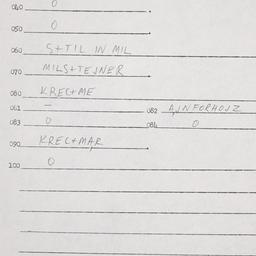 040 0
050 0
060 S+TIL IN MIL
070 MILS+TEJNER
080 KREC+ME
081 - 082 AJNFORHOJZ
083 0 084 0
090 KREC+MAR
100 0